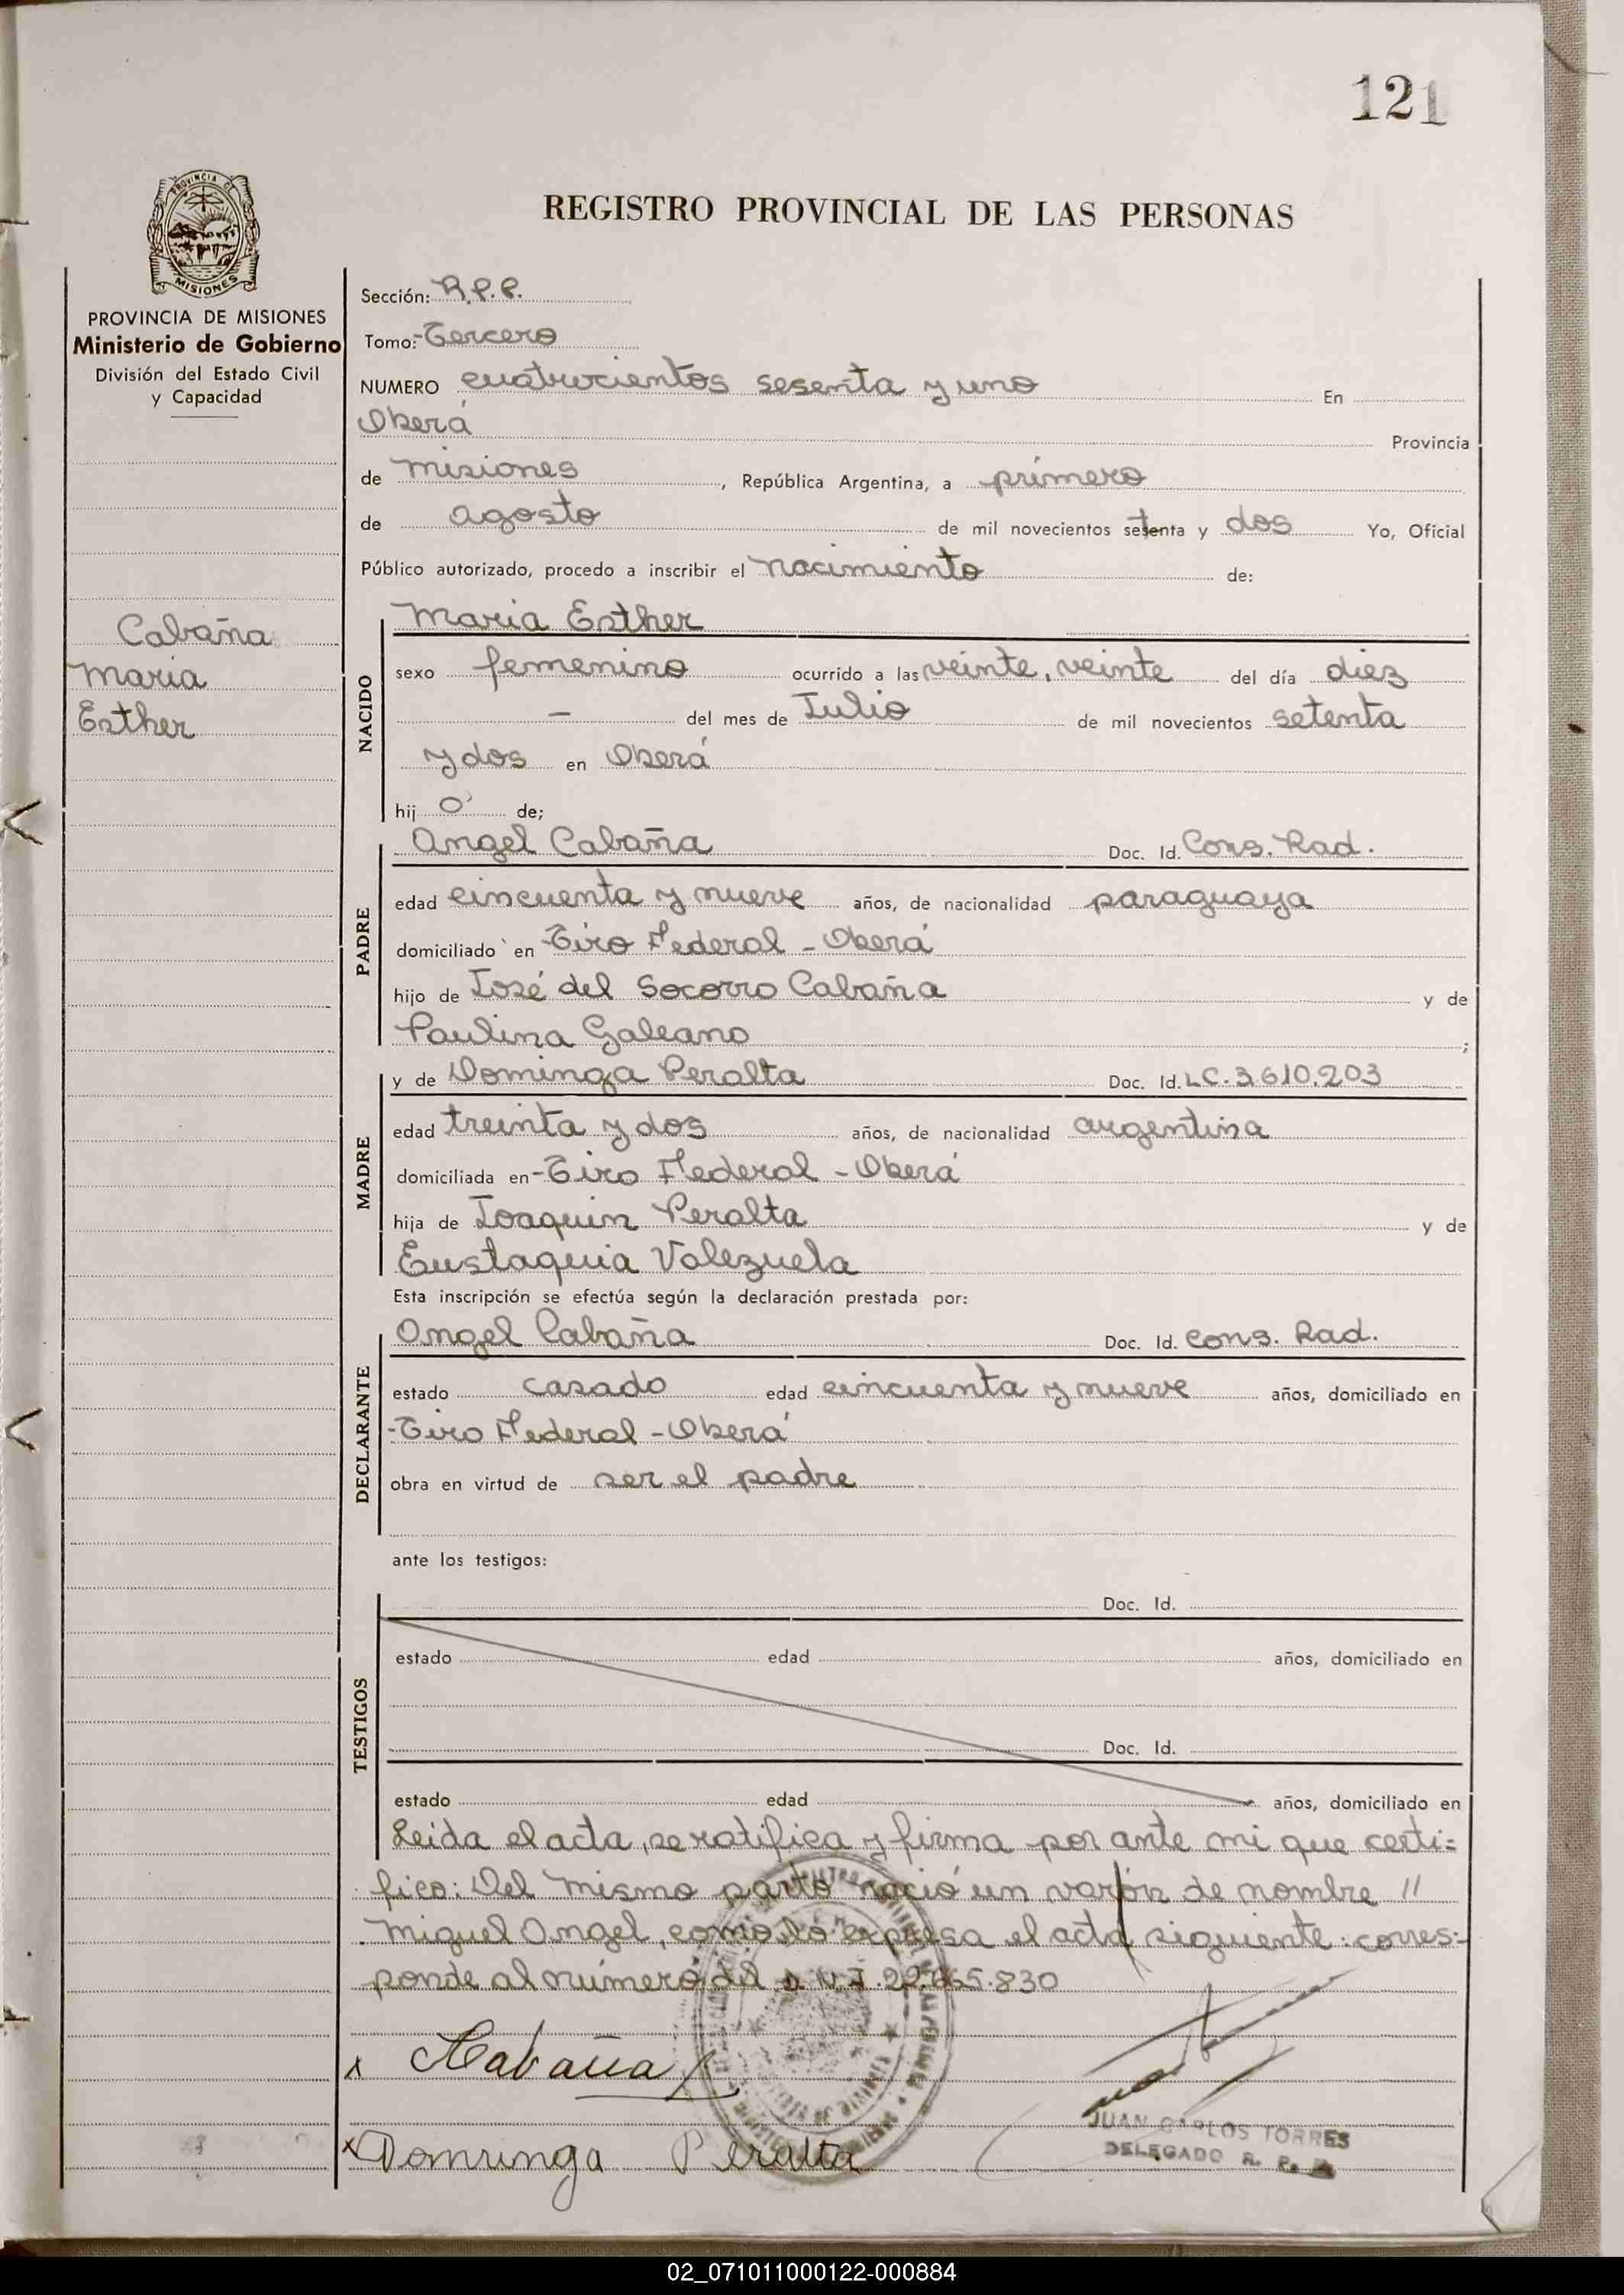 121
PROVINCIA DE
MISIONES
REGISTRO PROVINCIAL DE LAS PERSONAS
PROVINCIA DE MISIONES
Ministerio de Gobierno
División del Estado Civil
y Capacidad
Cabaña
Maria
Esther
Sección: R.P.P.
Tomo: Tercero
NUMERO cuatrocientos sesenta y uno En
Oberá Provincia
de Misiones, República Argentina, a primero
de agosto de mil novecientos setenta y dos Yo, Oficial
Público autorizado, procedo a inscribir el nacimiento de:
NACIDO
Maria Esther
sexo femenino ocurrido a las veinte, veinte del día diez
— del mes de Julio de mil novecientos setenta
y dos en Oberá
hij o de;
PADRE
Angel Cabaña Doc. Id. Cons. Rad.
edad cincuenta y nueve años, de nacionalidad paraguaya
domiciliado en Tiro Federal - Oberá
hijo de José del Socorro Cabaña y de
Paulina Galeano ;
MADRE
y de Dominga Peralta Doc. Id. LC. 3.610.203
edad treinta y dos años, de nacionalidad argentina
domiciliada en - Tiro Federal - Oberá
hija de Joaquin Peralta y de
Eustaquia Valezuela
Esta inscripción se efectúa según la declaración prestada por:
DECLARANTE
Angel Cabaña Doc. Id. Cons. Rad.
estado casado edad cincuenta y nueve años, domiciliado en
- Tiro Federal - Oberá
obra en virtud de ser el padre
ante los testigos:
TESTIGOS
Doc. Id.
estado edad años, domiciliado en
Doc. Id.
estado edad años, domiciliado en
Leida el acta, se ratifica y firma por ante mi que certi=
fico: Del mismo parto nació un varón de nombre //
Miguel Angel, como lo expresa el acta siguiente: corres-
ponde al número del D.N.I. 22.665.830
x Cabaña
x Dominga Peralta
JUAN CARLOS TORRES
DELEGADO R. P.
02_071011000122-000884